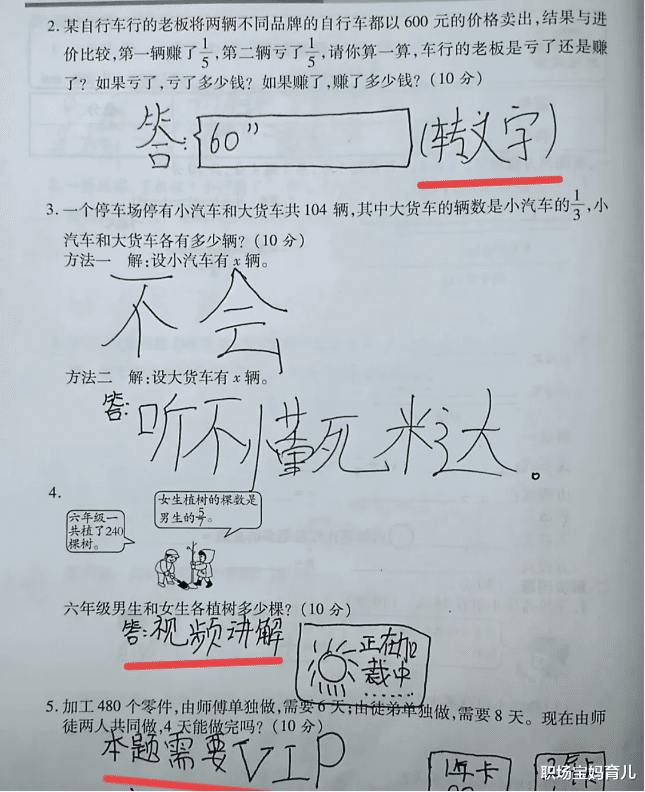 2. 某自行车行的老板将两辆不同品牌的自行车都以 600 元的价格卖出,结果与进
价比较,第一辆赚了1/5,第二辆亏了1/5,请你算一算,车行的老板是亏了还是赚
了? 如果亏了,亏了多少钱? 如果赚了,赚了多少钱? (10 分)
答: 60" (转文字)
3. 一个停车场停有小汽车和大货车共 104 辆,其中大货车的辆数是小汽车的1/3,小
汽车和大货车各有多少辆? (10 分)
方法一 解:设小汽车有 x 辆。
不会
方法二 解:设大货车有 x 辆。
答: 听不懂死米达。
4.
女生植树的棵数是
男生的5/7。
六年级一
共植了240
棵树。
六年级男生和女生各植树多少棵? (10 分)
答:视频讲解
正在加
载中
......
5. 加工 480 个零件,由师傅单独做,需要 6 天;由徒弟单独做,需要 8 天。现在由师
徒两人共同做,4 天能做完吗? (10 分)
本题需要VIP
1年卡
职场宝妈育儿